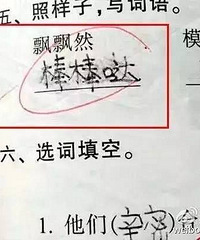 五、照样子,写词语。
飘飘然 模
棒棒哒
六、选词填空。
1. 他们(辛帝)台
weibo